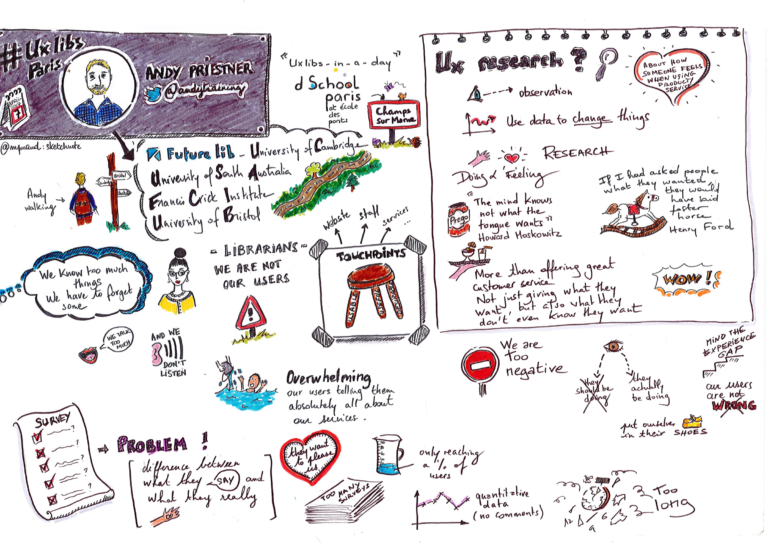 #Uxlibs
Paris
ANDY PRIESTNER
@andytraining
"Uxlibs-in-a-day"
d School
paris
at école
des
ponts
Champs
sur Marne
Future lib - University of Cambridge
University of South Australia
Francis Crick Institute
University of Bristol
Andy
walking
Bristol
We know too much
things
We have to forget
some
- LIBRARIANS -
WE ARE NOT
OUR USERS
website staff services...
TOUCHPOINTS
WE TALK
TOO
MUCH
AND WE
DON'T
LISTEN
Overwhelming
our users telling them
absolutely all about
our services.
SURVEY
PROBLEM !
difference between
what they SAY and
what they really
they want
to please
us
TOO MANY
SURVEYS
only reaching
a % of
users
quantitative
data
(no comments)
Too
long
Ux research ?
ABOUT HOW
SOMEONE FEELS
WHEN USING
PRODUCT/
SERVICE
observation
Use data to change things
RESEARCH
Doing & Feeling
"The mind knows
not what the
tongue wants"
Howard Moskowitz
Prego
If I had asked people
what they wanted
they would
have said
faster
horse
Henry Ford
More than offering great
customer service
Not just giving what they
want, but also what they
don't even know they want
WOW !
We are
Too
negative
they
should be
doing
they
actually
be doing
put ourselves
in their SHOES
MIND THE
EXPERIENCE
GAP
our users
are not
WRONG